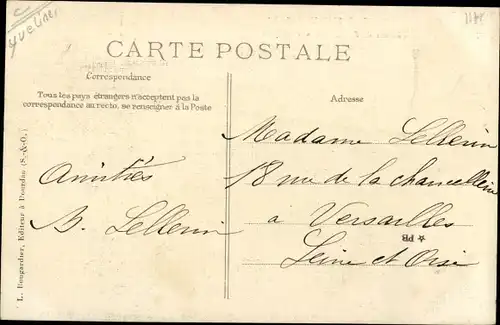 Yvelines
CARTE POSTALE
Correspondance
Tous les pays étrangers n'acceptent pas la
correspondance au recto, se renseigner à la Poste
Amitiés
B. Lellerin
Adresse
Madame Lellerin
18 rue de la Chancellerie
a Versailles
Seine et Oise
☆ PB
L. Bougardier, Editeur à Dourdan (S.-&-O.)